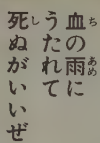 血の雨に
うたれて
死ぬがいいぜ